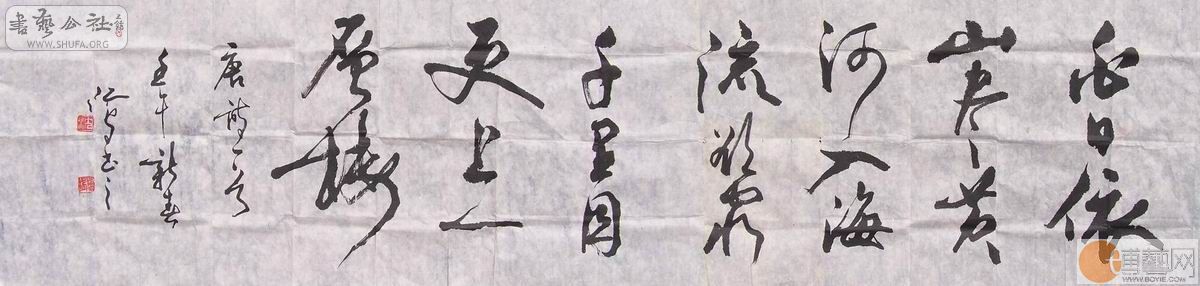 白日依
山尽黄
河入海
流欲穷
千里目
更上一
层楼
唐诗一首
壬午新春
书之
书艺公社
WWW.SHUFA.ORG
博艺网
WWW.BOYIE.COM